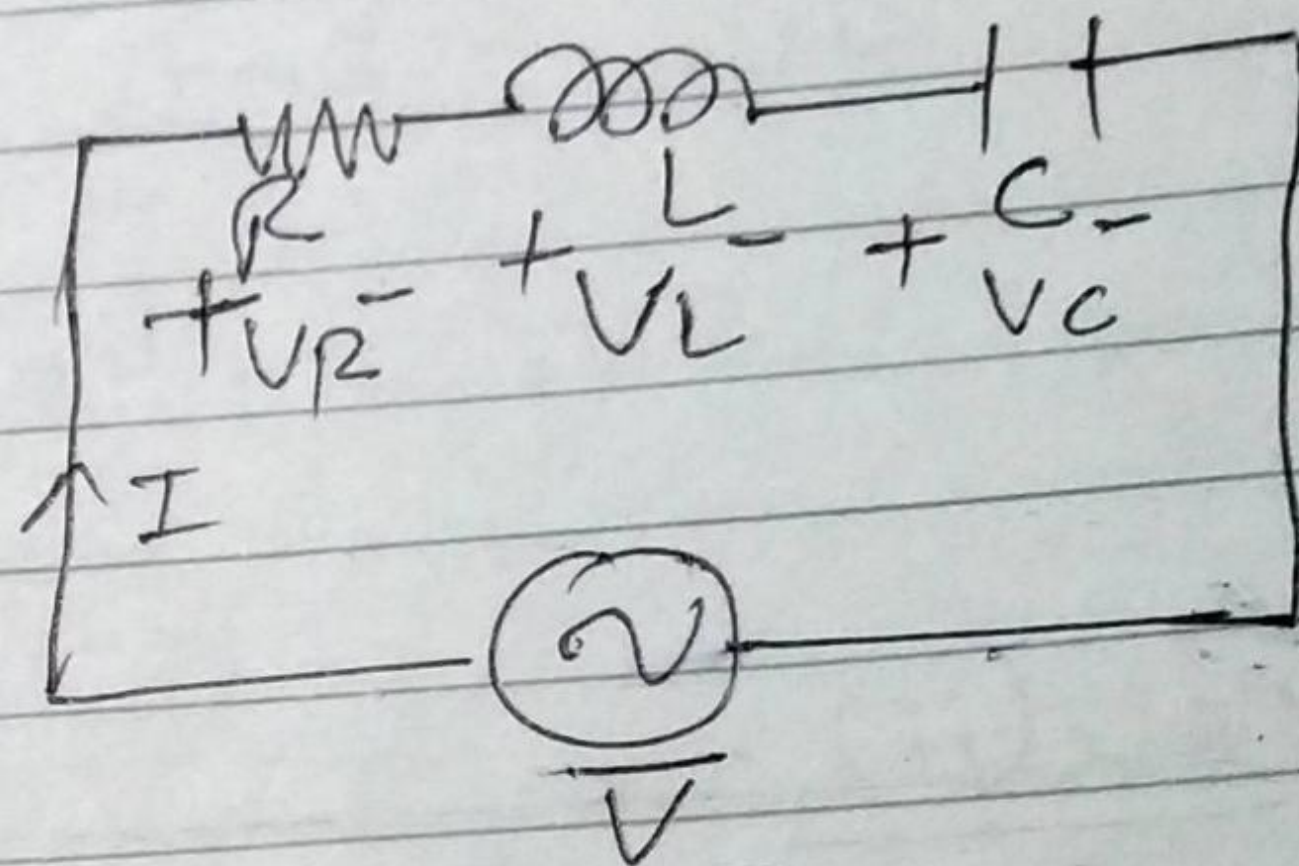 R L C
+ VR - + VL - + VC -
I
V